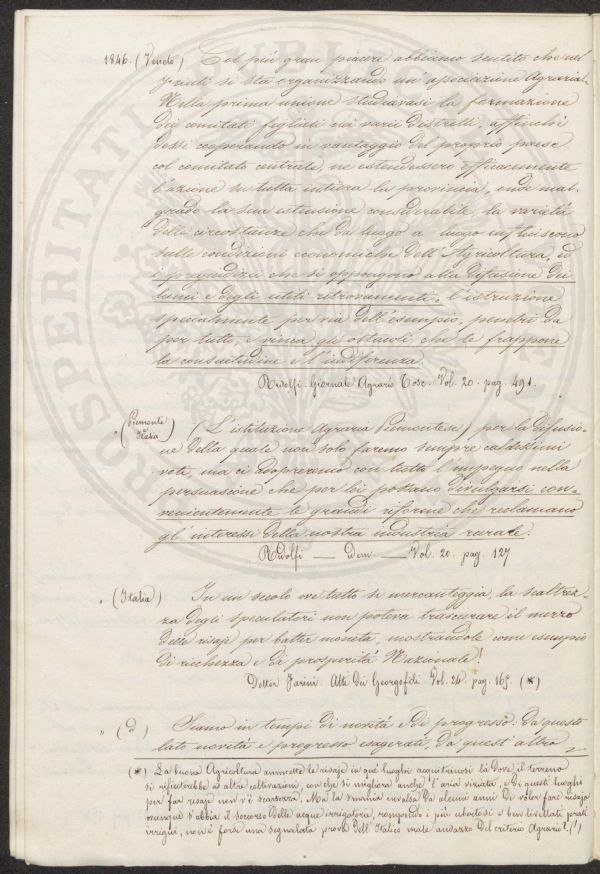 1846. (Veneto) Col più gran piacere abbiamo sentito che nel
Friuli si sta organizzando un' associazione Agraria.
Nella prima unione studiavasi la formazione
dei comitati figliali nei varii distretti, affinchè
dessi cooperando in vantaggio del proprio paese
col comitato centrale, ne estendessero efficacemente
l'azione su tutta intiera la provincia, onde mal-
grado la sua estensione considerabile, la varietà
delle circostanze che da luogo a luogo influiscono
sulle condizioni economiche dell'Agricoltura, ed
i pregiudizii che si oppongono alla difusione dei
lumi e degli utili ritrovamenti, l'istruzione
specialmente per via dell'esempio, penetri da
per tutto, e vinca gli ostacoli che le frappone
la consuetudine e l'indiferenza.
Ridolfi. Giornale Agrario Tosc. Vol. 20. pag. 491.
" (Piemonte Italia) (L'istituzione Agraria Piemontese) per la difusio-
ne della quale non solo faremo sempre caldissimi
voti, ma ci adopreremo con tutto l'impegno nella
persuasione che per lei possano divulgarsi con-
venientemente le grandi riforme che reclamano
gl'interessi della nostra industria rurale.
Ridolfi — Idem. — Vol. 20. pag. 127
" (Italia) In un secolo ove tutto si mercanteggia, la scaltrez-
za degli speculatori non poteva trascurare il mezzo
delle risaje per batter moneta, mostrandole come esempio
di ricchezza e di prosperità Nazionale!
Dottor Farini. Atti dei Georgofili. Vol. 24. pag. 165. (*)
" (d) Siamo in tempi di novità e di progresso: da questo
lato novità e progresso esagerati, da quest'altro
(*) La buona Agricoltura ammette le risaje in que' luoghi acquitrinosi là dove il terreno
si rifiuterebbe a altre coltivazioni, con che si migliora anche l'aria viziata, e di questi luoghi
per far risaje non v'è scarsezza. Ma la smania invalsa da alcuni anni di voler fare risaja
ovunque s'abbia il soccorso delle acque irrigatorie, rompendo i più ubertosi e ben livellati prati
irrigui, non è forse una segnalata prova dell'Italico male andazzo del criterio Agrario? (!)
PROSPERITATI PUBLICAE